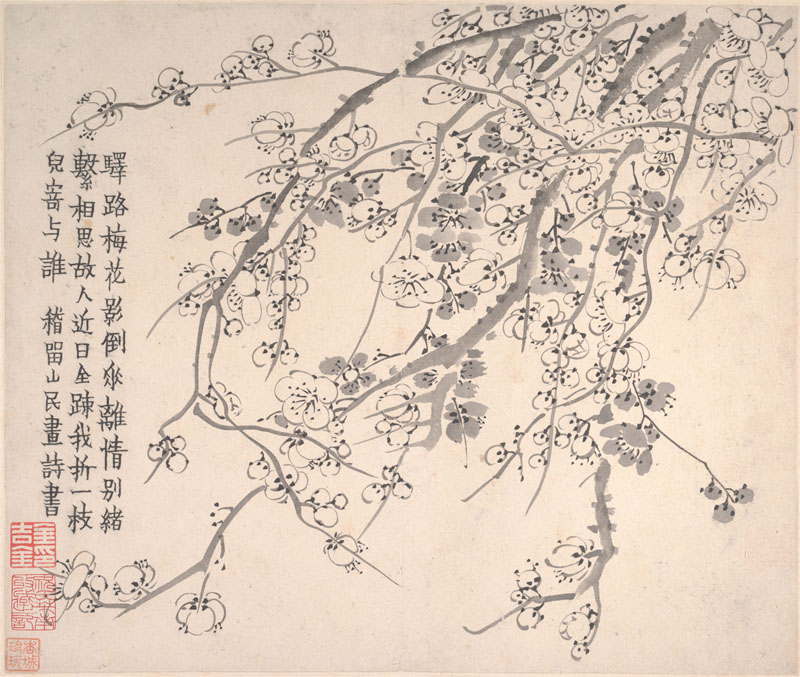 驛路梅花影倒垂離情别緒
繫相思故人近日全疎我折一枝
兒寄与誰 稽留山民畫詩書
金吉金印